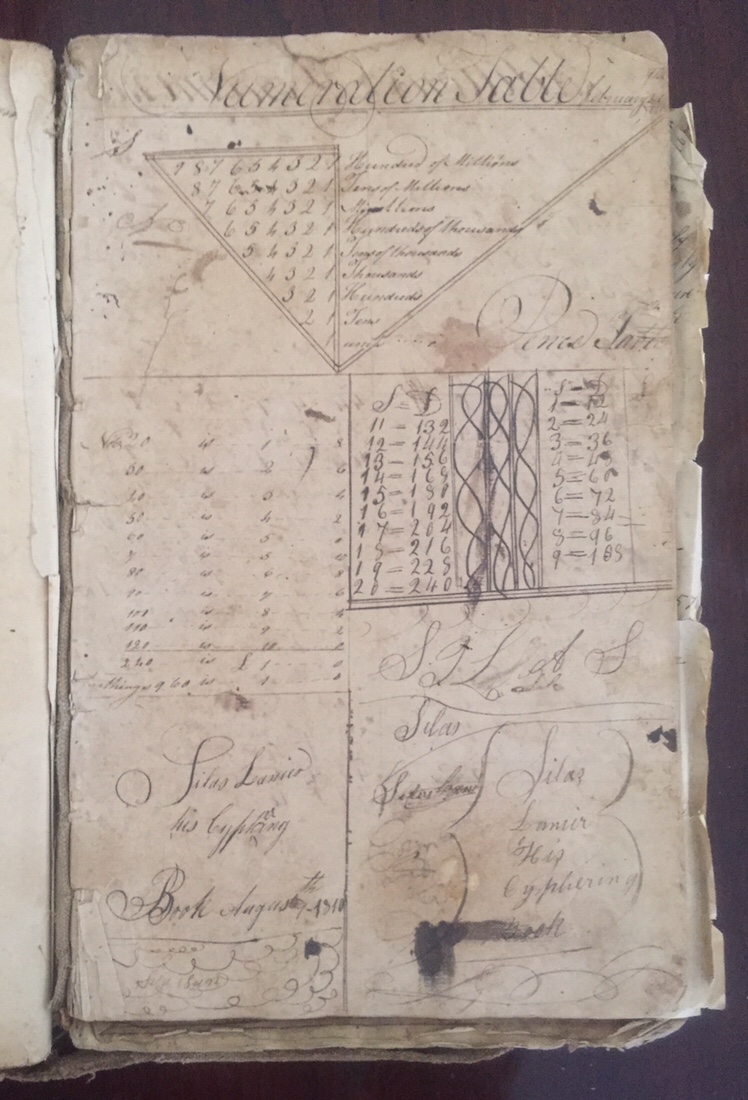 Numeration Table
February
9 8 7 6 5 4 3 2 1 Hundred of Millions
8 7 6 5 4 3 2 1 Tens of Millions
7 6 5 4 3 2 1 Millions
6 5 4 3 2 1 Hundreds of thousands
5 4 3 2 1 Tens of thousands
4 3 2 1 Thousands
3 2 1 Hundreds
2 1 Tens
1 units
Pence Table
20 is 1 8
30 is 2 6
40 is 3 4
50 is 4 2
60 is 5 0
is 5 10
80 is 6 8
90 is 7 6
100 is 8 4
110 is 9 2
120 is 10 0
240 is £ 1 0
farthings 960 is 1 0
S = D
11 = 132
12 = 144
13 = 156
14 = 168
15 = 180
16 = 192
17 = 204
18 = 216
19 = 228
20 = 240
S = D
1 = 12
2 = 24
3 = 36
4 = 48
5 = 60
6 = 72
7 = 84
8 = 96
9 = 108
Silas Lanier
his Cyphring
Book August
1810
Silas
Silas
Lanier
His
Cyphering
Book